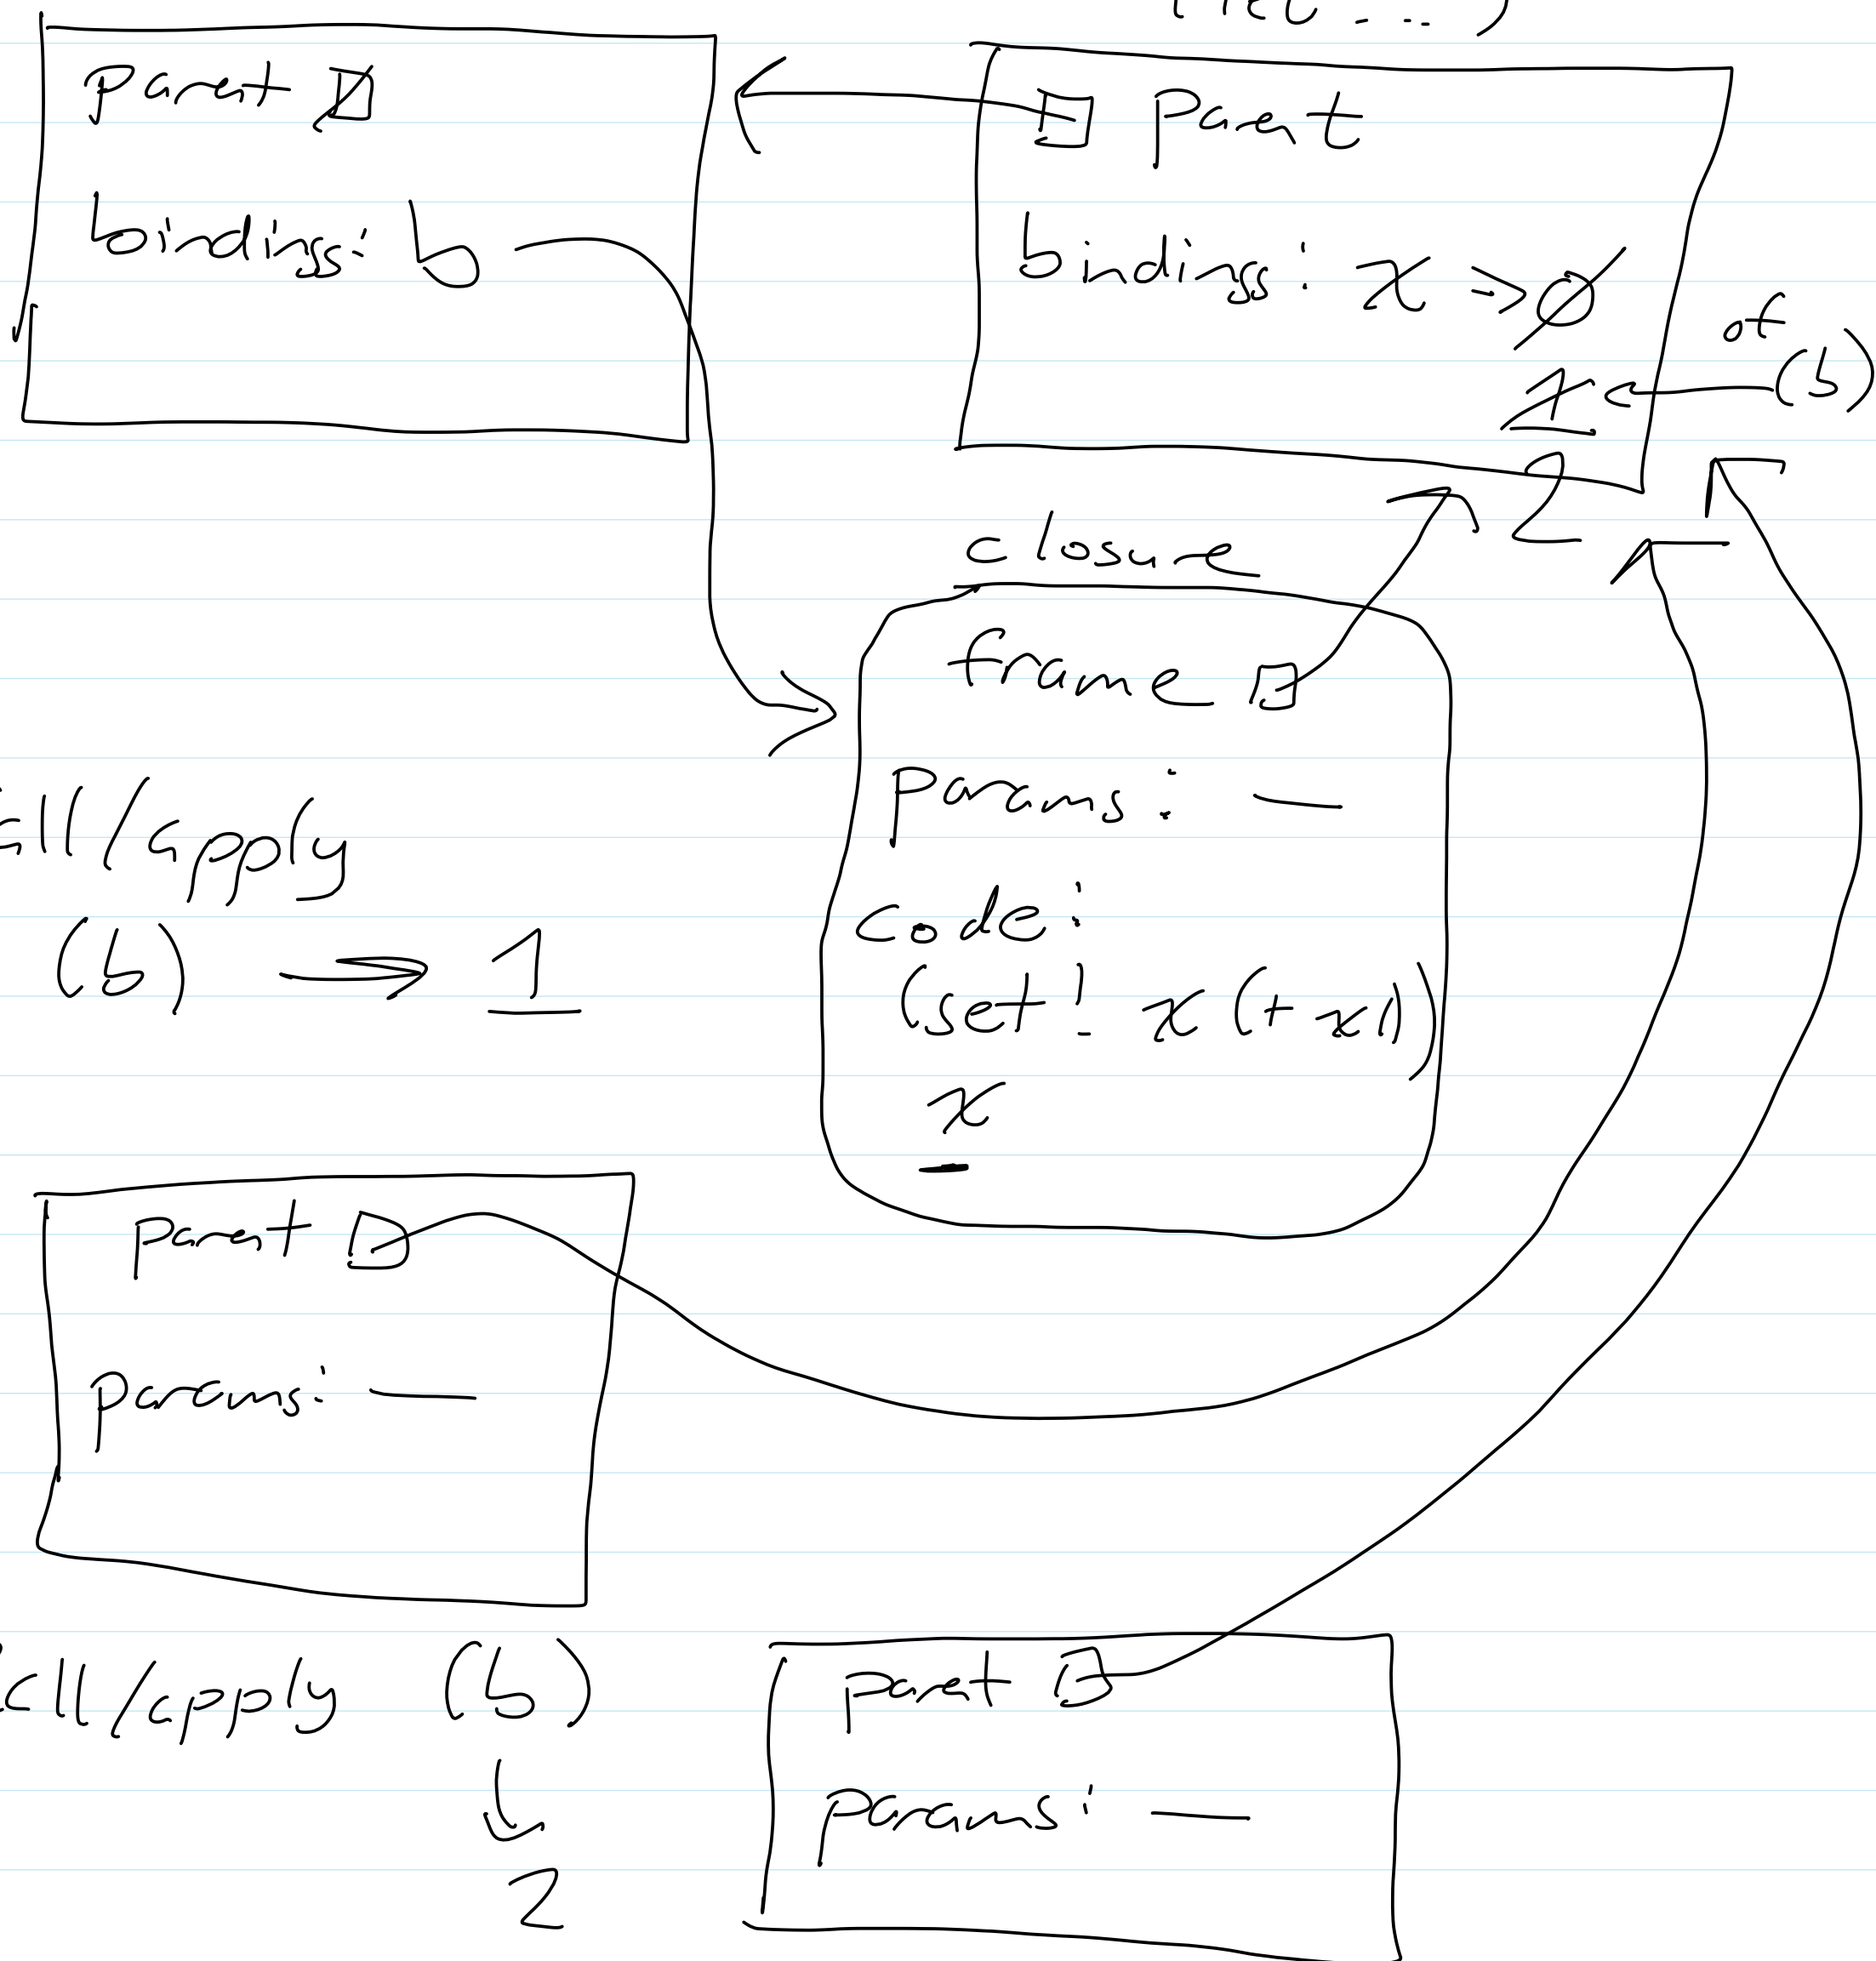 (let ---)
parent
bindings: b
parent
bindings: x → 0
1
2
at
(b)
closure
frame
params: —
code:
(set! x (+ x 1))
x
call/apply
(b) → 1
parent
params: —
call/apply (b)
2
parent
params: —